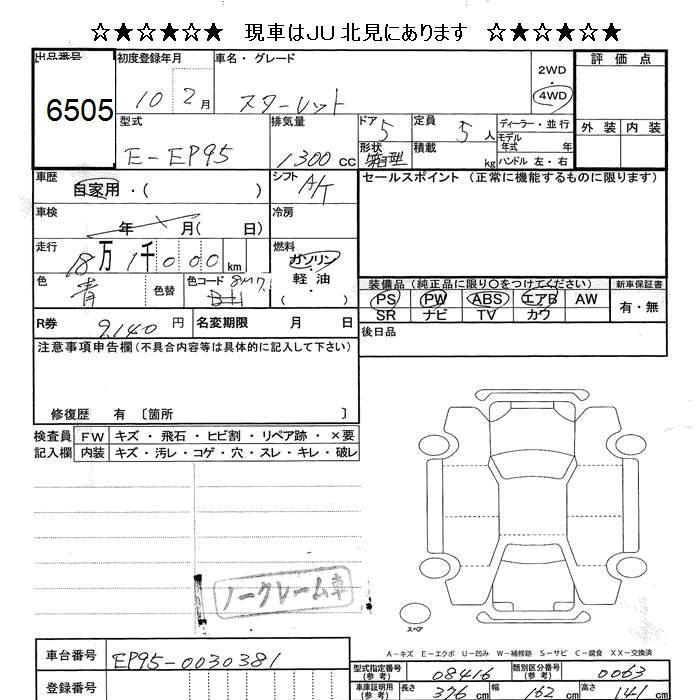 ☆★☆★☆★ 現車はJU北見にあります ☆★☆★☆★
出品番号 初度登録年月 車名・グレード 評価点
6505 10 2月 スターレット 2WD 4WD
外装 内装
型式 排気量 ドア 5 定員 5人 ディーラー・並行
モデル年式 年
E-EP95 1300cc 形状 箱型 積載 kg ハンドル 左・右
車歴 自家用・( ) シフト A/T セールスポイント (正常に機能するものに限ります)
車検 年 月( 日) 冷房
走行 18万1千000km 燃料 ガソリン・軽油・( )
色 青 色替 色コード 8M7
装備品 (純正品に限り○をつけてください) 新車保証書
PS PW ABS エアB AW 有・無
SR ナビ TV カワ
R券 9,140円 名変期限 月 日 後日品
注意事項申告欄(不具合内容等は具体的に記入して下さい)
修復歴 有 〔箇所 〕
検査員 FW キズ・飛石・ヒビ割・リペア跡・×要
記入欄 内装 キズ・汚レ・コゲ・穴・スレ・キレ・破レ
ノークレーム車
スペア
A-キズ E-エクボ U-凹み W-補修跡 S-サビ C-腐食 XX-交換済
車台番号 EP95-0030381
型式指定番号(参考) 08416 類別区分番号(参考) 0063
登録番号
車庫証明用(参考) 長さ 376cm 幅 162cm 高さ 141cm